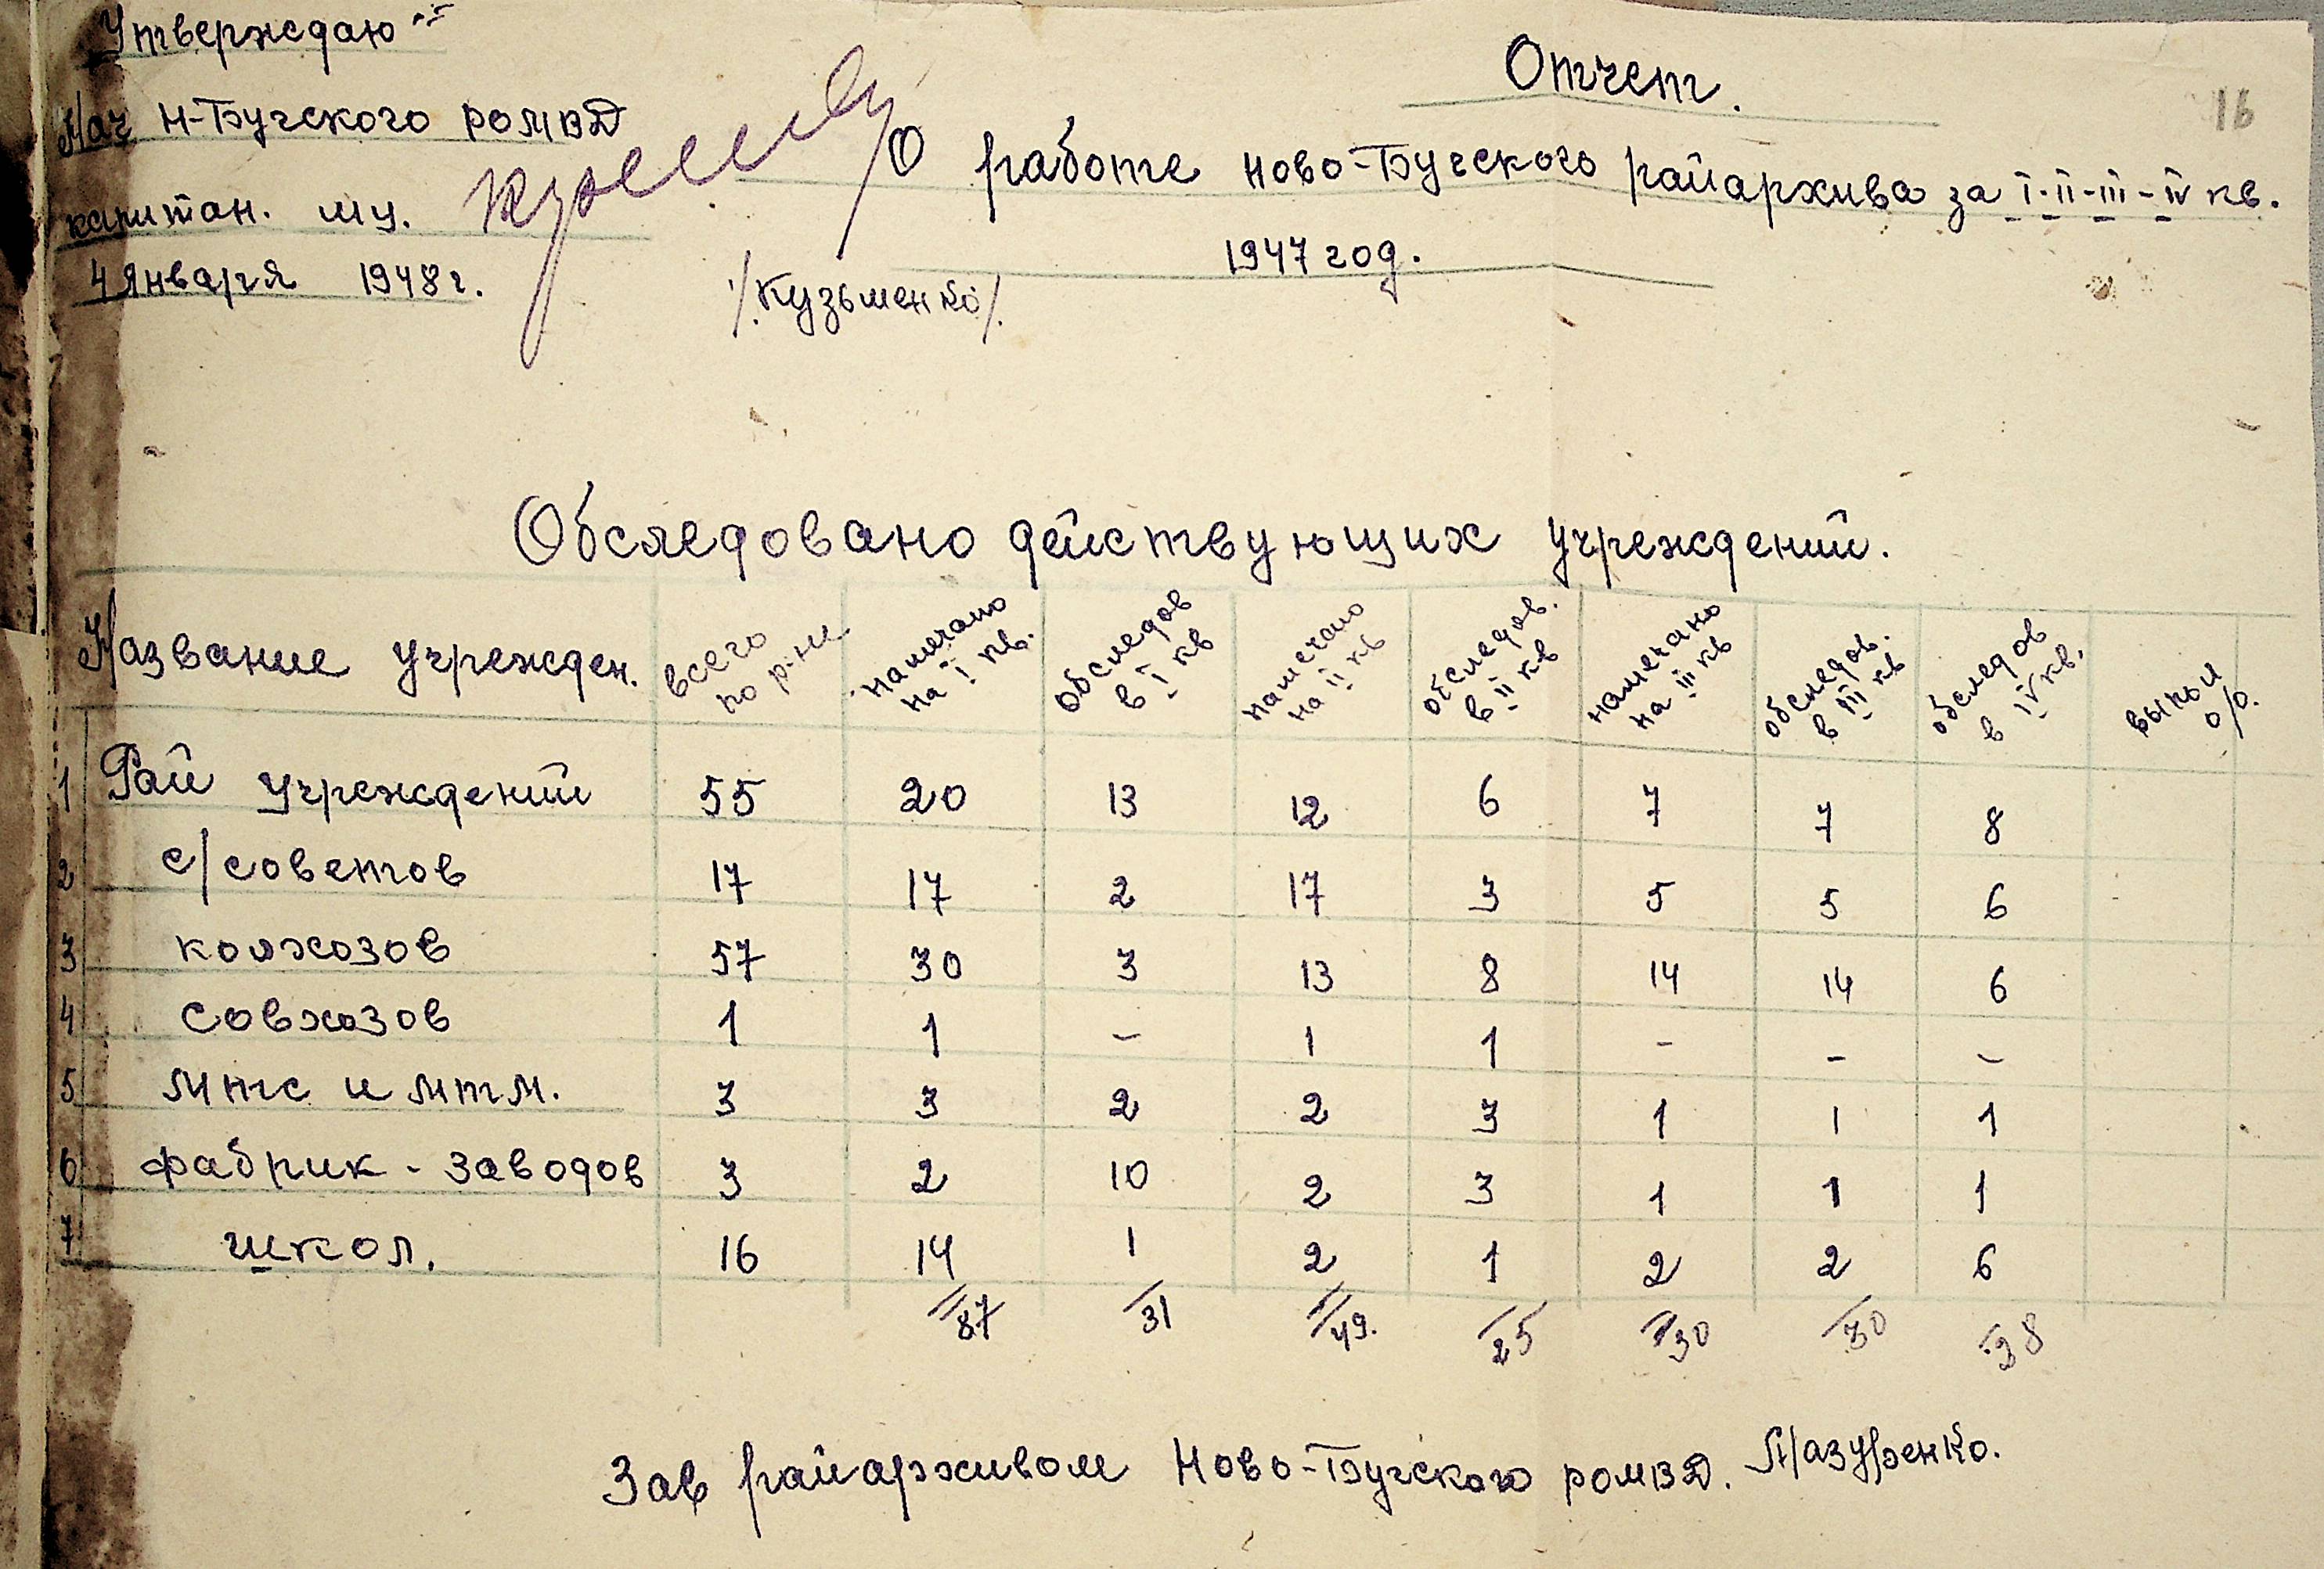 Утверждаю"
Нач Н-Бугского РОМВД
капитан. му.
4 января 1948 г.
/.Кузьменко/.
16
Отчет.
О работе Ново-Бугского райархива за I-II-III-IV кв.
1947 год.
Обследовано действующих учреждений.
Название учрежден. всего по р-ну намечано на I кв. обследов в I кв намечано на II кв обследов. в II кв намечано на III кв обследов. в III кв обследов в IV кв. выпол о/о.
1 Рай учреждений 55 20 13 12 6 7 7 8
2 с/советов 17 17 2 17 3 5 5 6
3 колхозов 57 30 3 13 8 14 14 6
4 Совхозов 1 1 - 1 1 - - -
5 МТС и МТМ. 3 3 2 2 3 1 1 1
6 фабрик - заводов 3 2 10 2 3 1 1 1
7 школ. 16 14 1 2 1 2 2 6
87 31 49. 25 30 30 28
Зав райархивом Ново-Бугского РОМВД. Мазуренко.